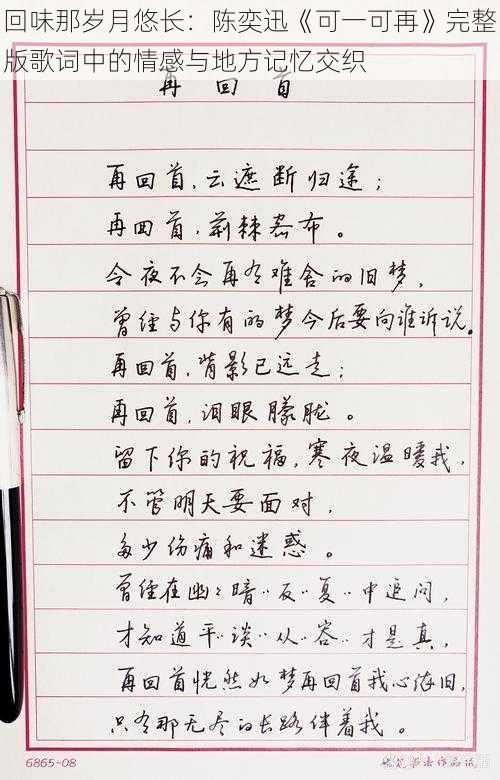 回味那岁月悠长：陈奕迅《可一可再》完整
版歌词中的情感与地方记忆交织
再回首
再回首，云遮断归途；
再回首，荆棘密布。
今夜不会再有难舍的旧梦，
曾经与你有的梦今后要向谁诉说。
再回首，背影已远走；
再回首，泪眼朦胧。
留下你的祝福，寒夜温暖我，
不管明天要面对，
多少伤痛和迷惑。
曾经在幽幽暗··反··复··中追问，
才知道平··淡··从··容··才是真，
再回首恍然如梦再回首我心依旧，
只有那无尽的长路伴着我。
6865-08